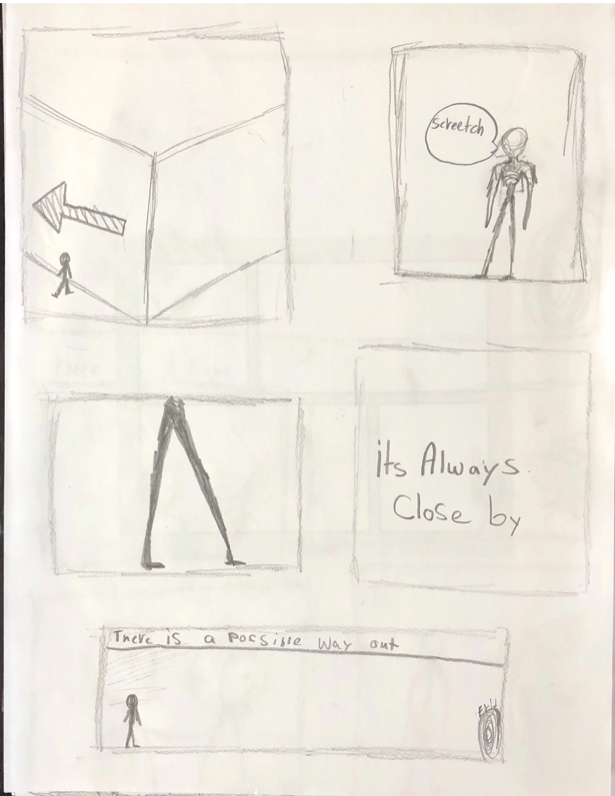 screetch
its Always
Close by
There is a possible way out